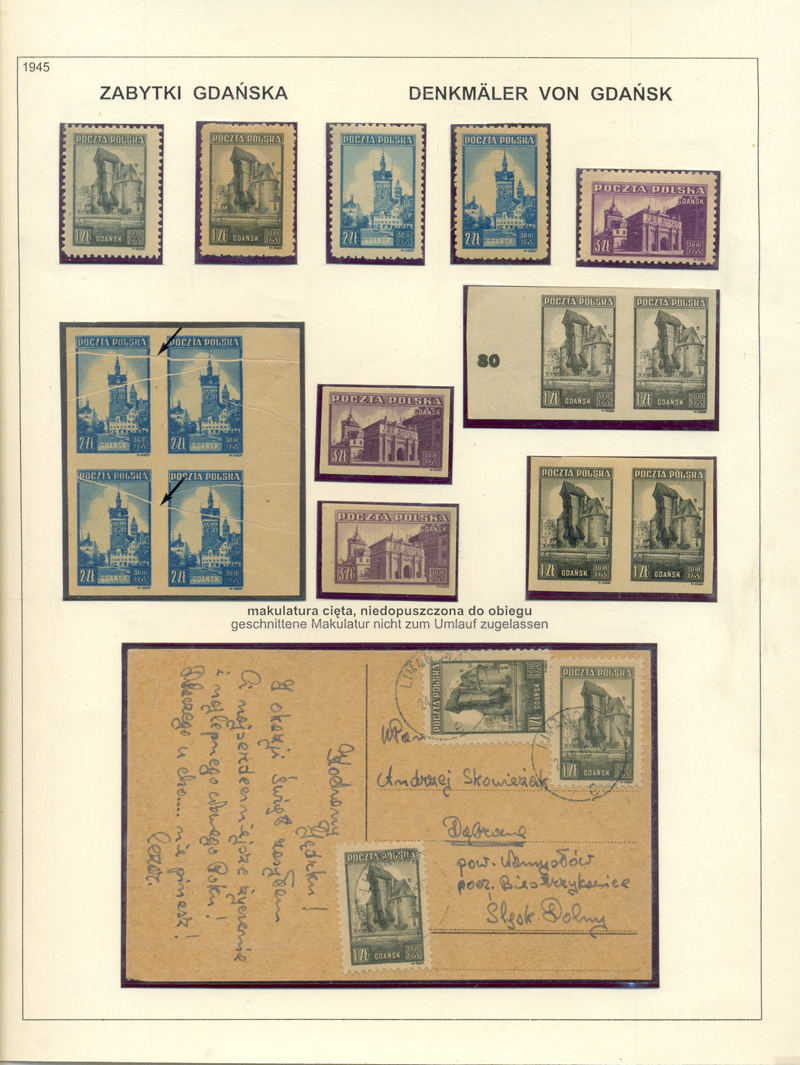 1945
ZABYTKI GDAŃSKA
DENKMÄLER VON GDAŃSK
POCZTA POLSKA
1ZŁ GDAŃSK 30III 1945
POCZTA POLSKA
1ZŁ GDAŃSK 30III 1945
POCZTA POLSKA
2ZŁ GDAŃSK 30III 1945
POCZTA POLSKA
2ZŁ GDAŃSK 30III 1945
POCZTA POLSKA
GDAŃSK
3ZŁ 30III 1945
POCZTA POLSKA
2ZŁ GDAŃSK 30III 1945
POCZTA POLSKA
2ZŁ GDAŃSK 30III 1945
POCZTA POLSKA
2ZŁ GDAŃSK 30III 1945
POCZTA POLSKA
2ZŁ GDAŃSK 30III 1945
80
POCZTA POLSKA
1ZŁ GDAŃSK 30III 1945
POCZTA POLSKA
1ZŁ GDAŃSK 30III 1945
POCZTA POLSKA
GDAŃSK
3ZŁ 30III 1945
POCZTA POLSKA
GDAŃSK
3ZŁ 30III 1945
POCZTA POLSKA
1ZŁ GDAŃSK 30III 1945
POCZTA POLSKA
1ZŁ GDAŃSK 30III 1945
makulatura cięta, niedopuszczona do obiegu
geschnittene Makulatur nicht zum Umlauf zugelassen
Kochany Jędrku!
Z okazji Świąt zasyłam
Ci najserdeczniejsze życzenia
i najlepszego Nowego Roku!
Dlaczego nie piszesz!
POCZTA POLSKA
1ZŁ GDAŃSK 30III 1945
POCZTA POLSKA
1ZŁ GDAŃSK 30III 1945
WPan
Andrzej Skowieżak
Dąbrowa
pow. Namysłów
pocz. Biestrzykowice
Śląsk Dolny
POCZTA POLSKA
1ZŁ GDAŃSK 30III 1945